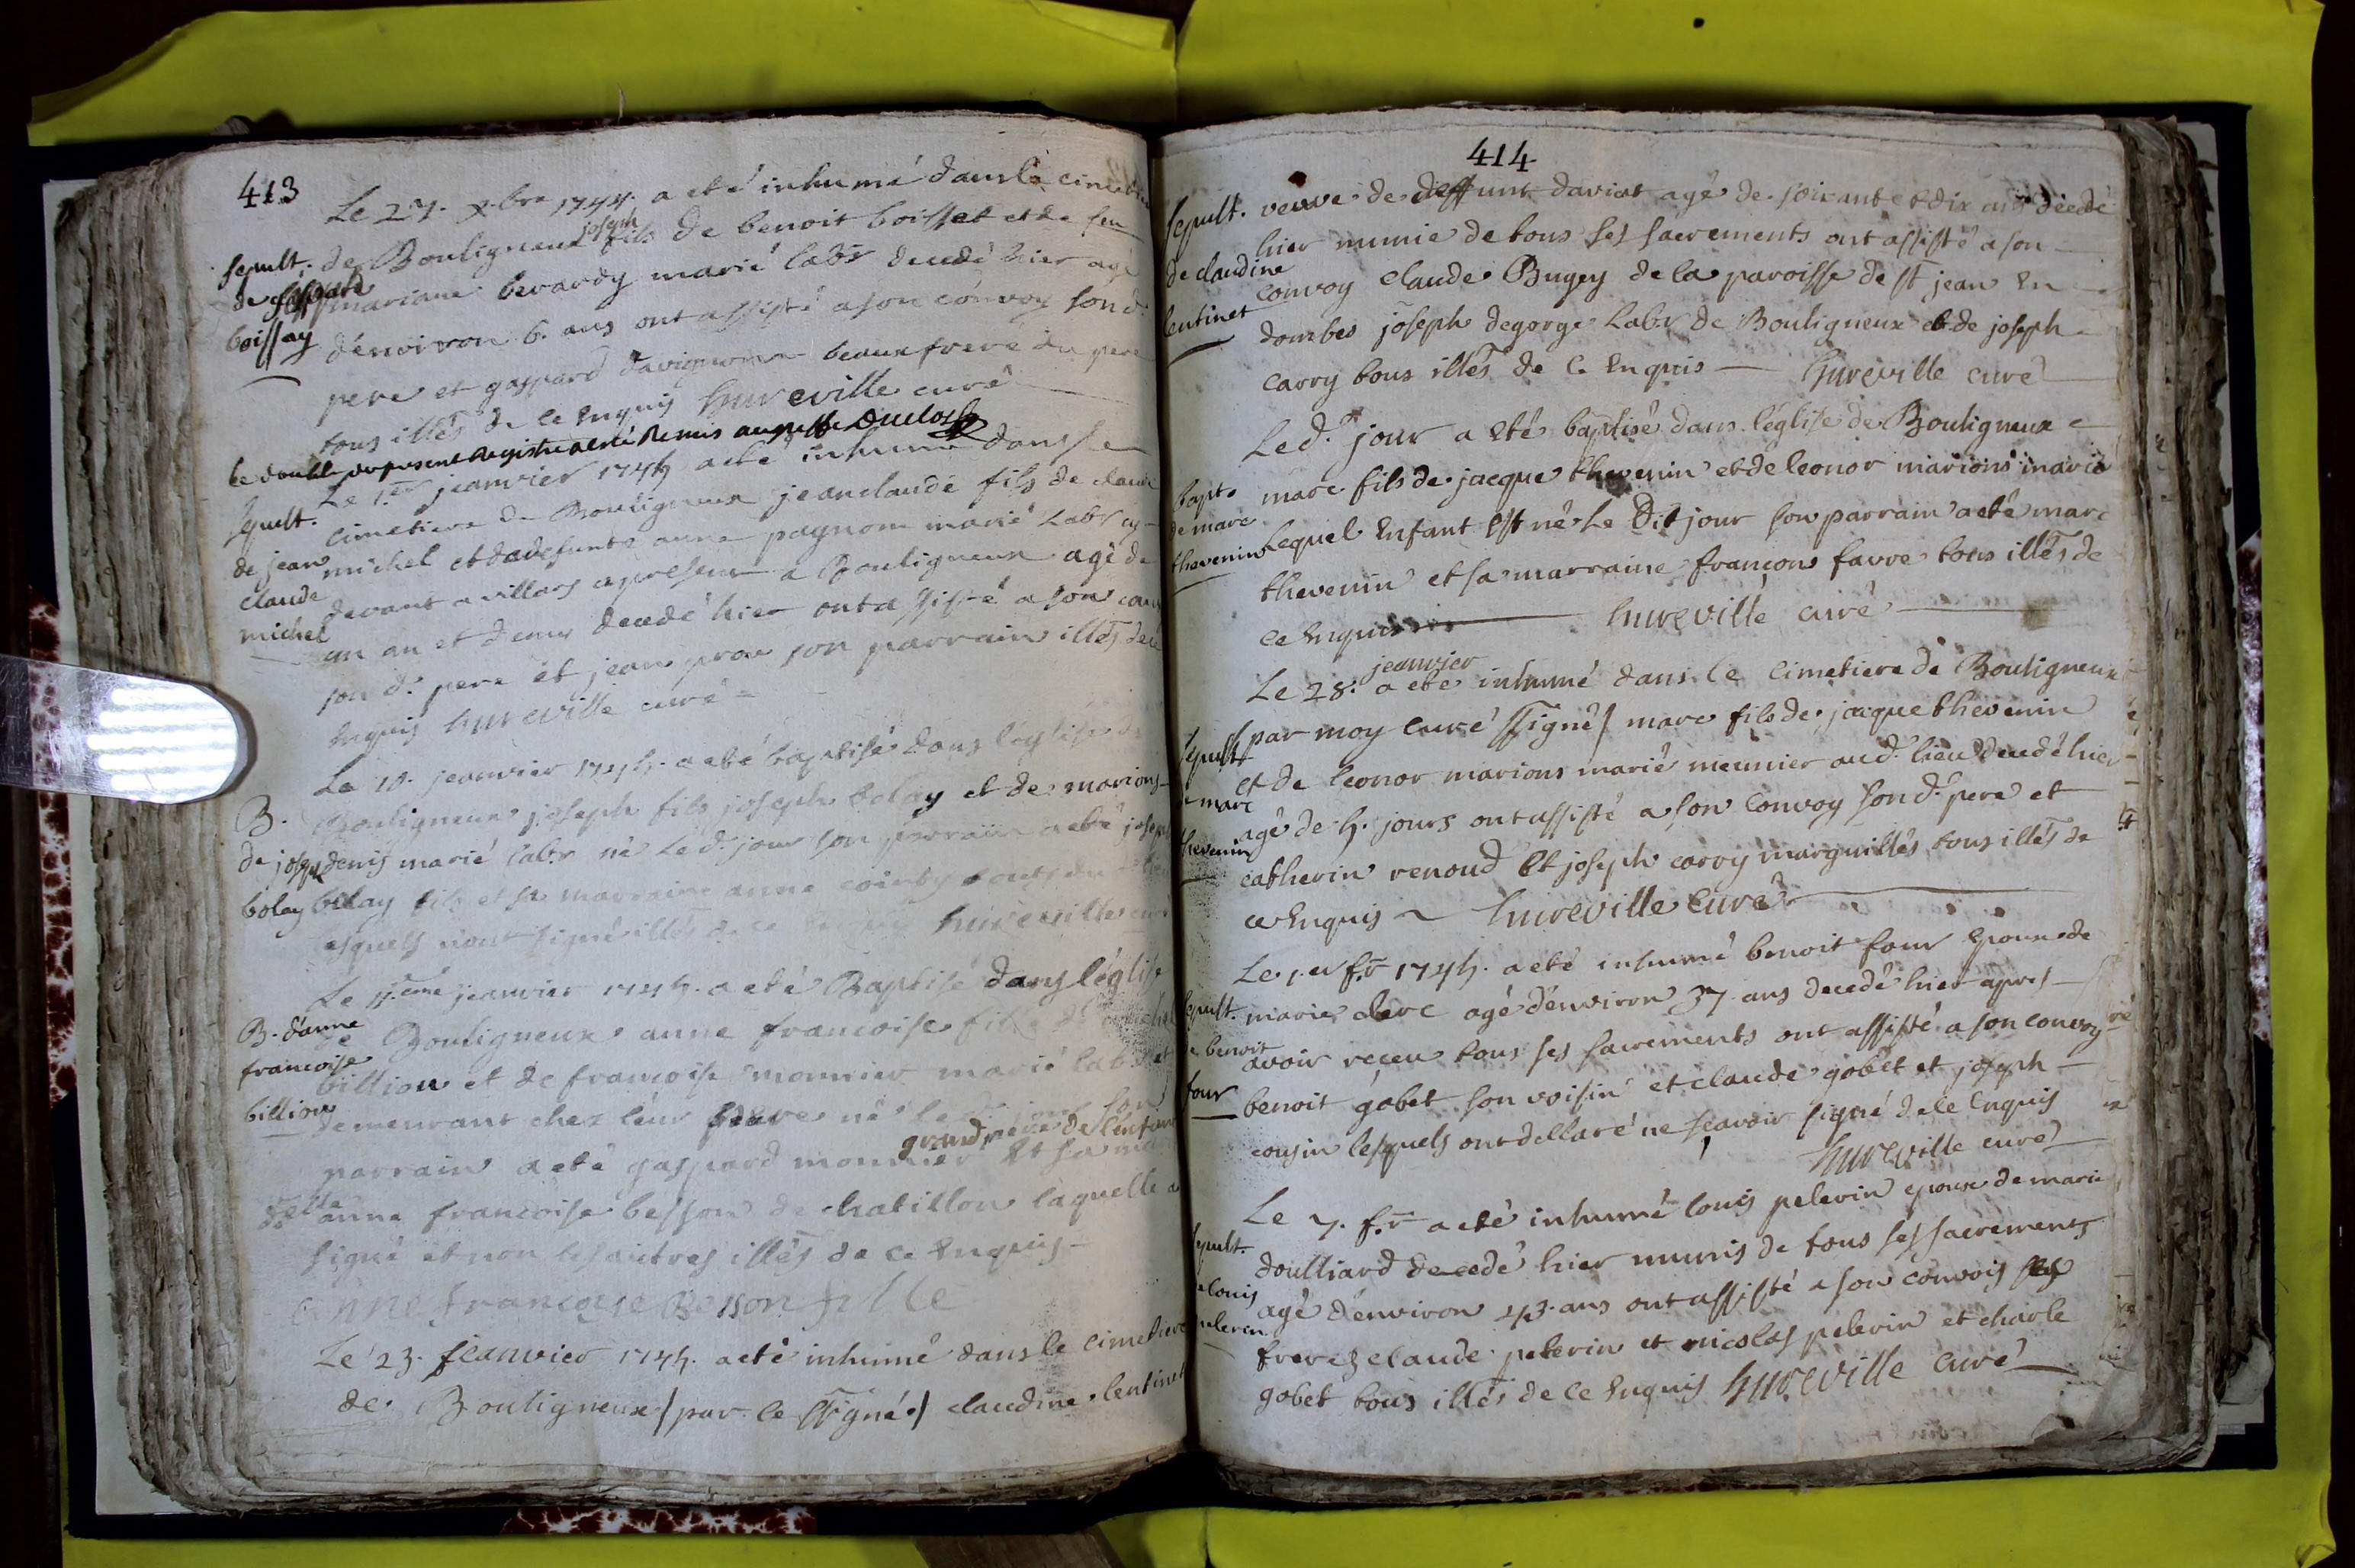 413
Le 27. xbre 1744. a eté inhumé dans le cimetiere
joseph
sepult. de Bouligneux fils de benoit boisset et de feu
de mariane berardy marié labr decedé hier agé
boissay d'environ 6. ans ont assisté a son convoy son d.
pere et gaspard davignon beaux frere du pere
tous illés de ce Enquis hureville curé
Le double du present Registre a eté Remis au greffe Duclos
Le 1.er jeanvier 1745 a eté inhumé dans le
sepult. cimetiere de Bouligneux jeanclaude fils de claude
de jean michel et de defunte anne pagnon marié labr cy
claude devant a villars a present a Bouligneux agé de
michel un an et demy decedé hier ont assisté a son con
son d. pere et jean son parrain illés de ce
Enquis hureville curé
Le 10. jeanvier 1745. a eté baptisé dans l'eglise de
B. Bouligneux joseph fils joseph bolay et de marions
de joseph denis marié labr né le d. jour son parrain a eté joseph
bolay bolay fils et sa marraine anne
lesquels n'ont signé illés de ce Enquis hureville curé
Le 11.eme jeanvier 1745. a eté Baptisé dans l'église
B. d'anne de Bouligneux anne francoise fille de
francoise billion et de francoise monnier marié labr et
billion demeurant chez leur pere né le d. jour son
grand pere de l'enfant
parrain a eté gaspard monnier Et sa ma
delle anne francoise besson de chatillon laquelle a
signé et non les autres illés de ce Enquis
anne francoise Besson fille
Le 23. jeanvier 1745. a eté inhumé dans le cimetiere
de Bouligneux / par le ssigné / claudine lentinet
414
sepult. veuve de deffunt daviat agé de soixante et dix ans decedé
hier munie de tous ses sacrements ont assisté a son
de claudine convoy claude Bugey de la paroisse de st jean En
lentinet dombes joseph degorge labr de Bouligneux et de joseph
carry tous illés de ce Enquis hureville curé
Le d. jour a eté baptisé dans l'église de Bouligneux
bapt. marc fils de jacque thevenin et de leonor marions marié
de marc
thevenin Lequel Enfant est né Le Dit jour son parrain a eté marc
thevenin et sa marraine françon favre tous illés de
ce Enquis hureville curé
jeanvier
Le 28. a eté inhumé dans le cimetiere de Bouligneux
sepult / par moy curé ssigné / marc fils de jacque thevenin
et de leonor marions marié meunier aud. lieu decedé hier
marc
thevenin agé de 5. jours ont assisté a son convoy son d. pere et
catherin renoud Et joseph carry marguillés tous illés de
ce Enquis hureville curé
Le 1.er fr 1745. a eté inhumé benoit four Epoux de
sepult. marie clerc agé d'environ 37 ans decedé hier apres
de benoit avoir receu tous ses sacrements ont assisté a son convoy
four benoit gobet son voisin et claude gobet et joseph
cousin lesquels ont dellaré ne scavoir signé de ce Enquis
hureville curé
Le 7. fr a eté inhumé louis pelerin epoux de marie
sepult. doulliard decedé hier munis de tous ses sacrements
louis agé d'environ 43. ans ont assisté a son convois ses
pelerin freres claude pelerin et nicolas pelerin et charle
gobet tous illés de ce Enquis hureville curé